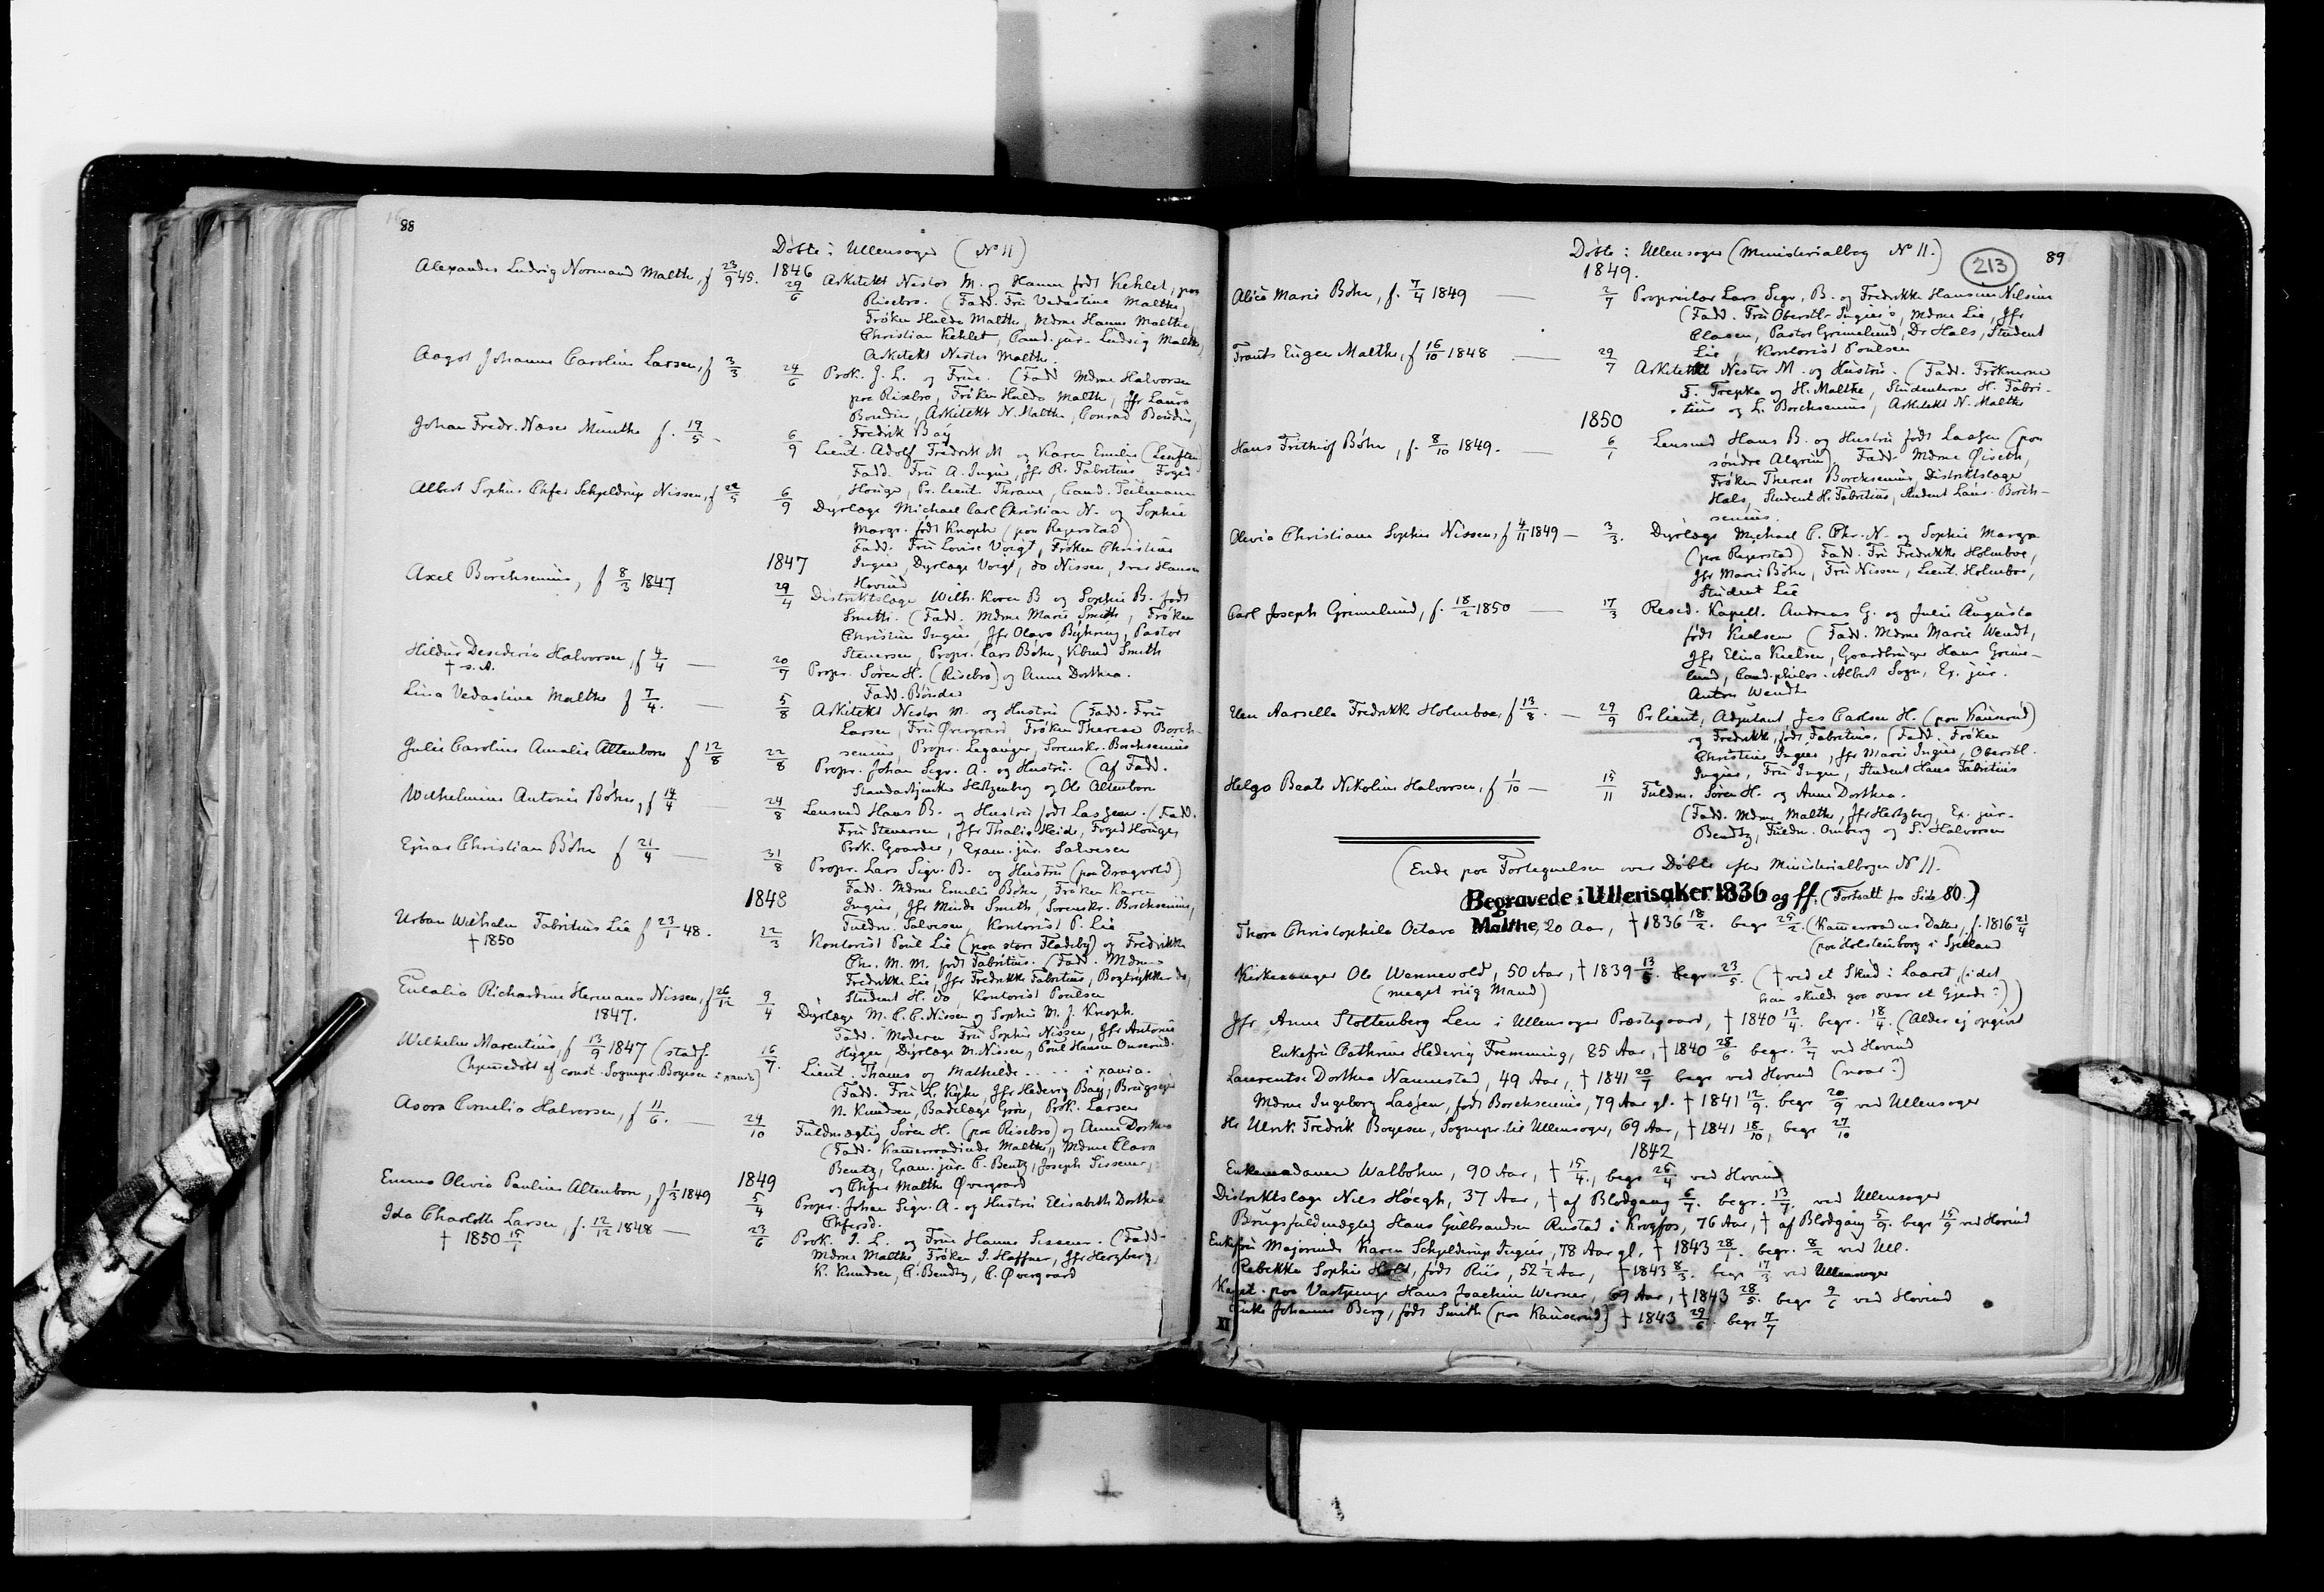 88
Døbte i Ullensager (No 11)
Alexander Ludvig Normand Malthe, f 23/9 45.
1846
29/6 Arkitekt Nestor M. og Hanna født Kehlet, paa
Risebro. (Fadd. Fru Vedastine Malthe,
Frøken Hulda Malthe, Mdme Hanne Malthe,
Christian Kehlet, Cand. jur. Ludvig Malthe,
Arkitekt Nestor Malthe.
Aagot Johanne Caroline Larsen, f 3/3
24/6 Prok. J. L. og Frue. (Fadd Mdme Halvorsen
paa Risebro, Frøken Hulda Malthe, Jfr Laura
Boudin, Arkitekt N. Malthe, Conrad Boudin,
Fredrik Bay
Johan Fredr. Næser Munthe f. 19/5
6/9 Lieut. Adolf Fredrik M og Karen Emilie
Fadd. Fru A. Ingier, Jfr R. Fabritius Foged
Houge, Pr. lieut. Thrane, Cand. Teilmann
Albert Sophus Chfer Schjeldrup Nissen, f 22/5
6/9 Dyrlæge Michael Carl Christian N. og Sophie
Margr. født Knoph (paa Ragerstad)
Fadd. Fru Lovise Voigt, Frøken Christine
Ingier, Dyrlæge Voigt, do Nissen, Iver Hansen
Hovind
1847
Axel Borchsenius, f 8/3 1847
29/4 Distriktslæge Wilh. Koren B og Sophie B. født
Smith. (Fadd. Mdme Marie Smith, Frøken
Christine Ingier, Jfr Olava Byhring, Pastor
Stenersen, Propr. Lars Bøhn, Smith
Hildur Desideria Halvorsen, f 4/4 —
† s. A.
20/7 Propr. Søren H. (Risebro) og Anne Dorthea.
Fadd. Bønder
Lina Vedastina Malthe f 7/4. —
5/8 Arkitekt Nestor M. og Hustru (Fadd. Fru
Larsen, Fru Øvergaard, Frøken Therese Borch-
senius, Propr. Leganger, Sorenskr. Borchsenius
Julie Caroline Amalie Altenborn f 12/8
22/8 Propr. Johan Segv. A. og Hustru. (Af Fadd.
Standartjunker Hertzenberg og Ole Altenborn
Wilhelmine Antonie Bøhn, f 14/4
24/8 Lensmd Hans B. og Hustru født Lassen. (Fadd.
Fru Stenersen, Jfr Thalia Heide, Foged Houge,
Prok. Gaarder, Exam. jur. Salvesen
Ejnar Christian Bøhn f 21/4 —
31/8 Propr. Lars Sigv. B. og Hustru (paa Dragvold)
Fadd. Mdme Emilie Bøhn, Frøken Karen
Ingier, Jfr Minda Smith, Sorenskr. Borchsenius,
Fuldm. Salvesen, Kontorist P. Lie
1848
Urban Wilhelm Fabritius Lie f 23/1 48.
† 1850
22/3 Kontorist Poul Lie (paa store Fladeby) og Fredrikke
Chr. M. M. født Fabritius. (Fadd. Mdme
Fredrikke Lie, Jfr Fredrikke Fabritius, Bogtrykker do,
Student H. do, Kontorist Poulsen
Eulalia Richardine Hermana Nissen, f 26/12
1847.
9/4 Dyrlæge M. C. C. Nissen og Sophie M. f. Knoph.
Fadd. Moderen Fru Sophie Nissen, Jfr Antonie
Hygen, Dyrlæge M. Nissen, Poul Hansen Onsrud.
Wilhelm Marentius, f 13/9 1847 (stadf.
(hjemmedøbt af const. Sognepr. Boyesen i pavia)
16/7. Lieut. Thams og Mathilde . . . . i pavia.
(Fadd. Fru L. Kyhn, Jfr Hedevig Bay, Brugsejer
N. Knudsen, Badilæge Grøn, Prok. Larsen
Asora Cornelia Halvorsen, f 11/6. —
24/10 Fuldmægtig Søren H. (paa Risebro) og Anne Dorthea
(Fadd. Kammerraadinde Malthe, Mdme Clara
Bentz, Exam. jur. C. Bentz, Joseph Sissener,
og Chfer Malthe Øvergaard
1849
Emma Olivia Pauline Altenborn, f 1/3 1849
5/4 Propr. Johan Sigv. A. og Hustru Elisabeth Dorthea
Chfersd.
Ida Charlotte Larsen, f. 12/12 1848 —
† 1850 15/1
23/6 Prok. J. L. og Frue Hanna Sissener. (Fadd.
Mdme Malthe, Frøken J. Haffner, Jfr Herzberg,
K. Knudsen, C. Bendtz, C. Øvergaard
Døbte i Ullensager (Ministerialbog No 11.)
213
89
1849.
Alice Marie Bøhn, f. 7/4 1849 —
2/7 Proprietær Lars Segv. B. og Fredrikke Hansine Nilsine
(Fadd. Fru Oberstlt Ingier, Mdme Lie, Jfr
Clasen, Pastor Grimelund, Dr Hals, Student
Lie, Kontorist Poulsen
Frants Eugen Malthe, f 16/10 1848 —
29/7 Arkitekt Nestor M. og Hustru. (Fadd. Frøknerne
F. Trepka og H. Malthe, Studenterne H. Fabri-
tius og L. Borchsenius, Arkitekt N. Malthe
1850
Hans Frithiof Bøhn, f. 8/10 1849. —
6/1 Lensmd Hans B. og Hustru født Lassen (paa
søndre Algrim) Fadd. Mdme Øiseth,
Frøken Therese Borchsenius, Distriktslæge
Hals, Student H. Fabritius, Student Laur. Borch-
senius.
Olivia Christiane Sophie Nissen, f 4/11 1849 —
3/3. Dyrlæge Michael C. Chr. N. og Sophie Margr.
(paa Ragerstad) Fadd. Fru Fredrikke Holmboe,
Jfr Marie Bøhn, Fru Nissen, Lieut. Holmboe,
Student Lie
Carl Joseph Grimelund, f. 18/2 1850 —
17/3 Resid. Kapell. Andreas G. og Julie Augusta
født Kielsen (Fadd. Mdme Marie Wendt,
Jfr Elina Kielsen, Gaardbruger Hans Grime-
lund, Cand. philos. Albert Sogn, Ex. jur.
Anton Wendt
Elen Marsella Fredrikke Holmboe, f 13/8. —
29/9 Pr lieut, Adjutant Jes Carlsen H. (paa Kauserud)
og Fredrikke, født Fabritius, (Fadd. Frøken
Christine Ingier, Jfr Marie Ingier, Oberstl.
Ingier, Fru Ingier, Student Hans Fabritius
Helga Beate Nikoline Halvorsen, f 1/10 —
15/11 Fuldm. Søren H. og Anne Dorthea.
(Fadd. Mdme Malthe, Jfr Hertzberg, Ex. jur.
Bendtz, Fuldm. Omberg og S. Halvorsen
(Ende paa Fortegnelsen over Døbte efter Ministerialbogen No 11.)
Begravede i Ullensaker 1836 og ff. (Fortsatt fra Side 80.)
Thora Christophila Octava Malthe, 20 Aar, † 1836 18/2. begr 25/2. (Kammerraadens Datter, f. 1816 21/4
(paa Holstenborg i Sjelland
Kirkesanger Ole Wennevold, 50 Aar, † 1839 13/5. begr. 23/5. († ved et Skud i Laaret, (idet
(meget riig Mand) han skulde gaa over et Gjerde?))
Jfr Anne Stoltenberg Leu i Ullensager Præstegaard, † 1840 13/4. begr. 18/4. (Alder ej opgivet
Enkefru Cathrine Hedevig Fremming, 85 Aar, † 1840 28/6 begr. 3/7 ved Hovind
Laurentse Dorthea Nannestad, 49 Aar, † 1841 20/7 begr ved Hovind (naar?)
Mdme Ingeborg Lassen, født Borchsenius, 79 Aar gl. † 1841 12/9. begr 20/9 ved Ullensager
Hr Ulrik Fredrik Boyesen, Sognepr. til Ullensager, 69 Aar, † 1841 18/10, begr 27/10
1842
Enkemadame Walbohm, 90 Aar, † 15/4., begr 26/4 ved Hovind
Distriktslæge Niels Høegh, 37 Aar, † af Blodgang 6/7. begr. 13/7. ved Ullensager
Brugsfuldmægtig Hans Gulbrandsen Rustad i Krogfos, 76 Aar, † af Blodgang 5/9. begr 15/9 ved Hovind
Enkefru Majorinde Karen Schjelderup Ingier, 78 Aar gl. † 1843 28/1. begr. 8/2 ved Ull.
Rebekka Sophie Holst, født Riis, 52 1/2 Aar, † 1843 8/3. begr 17/3 ved Ullensager
Kapt. paa Vartpenge Hans Joachim Werner, 69 Aar, † 1843 28/5. begr 9/6 ved Hovind
Enke Johanne Berg, født Smith (paa Kauserud) † 1843 29/6. begr 7/7
XI